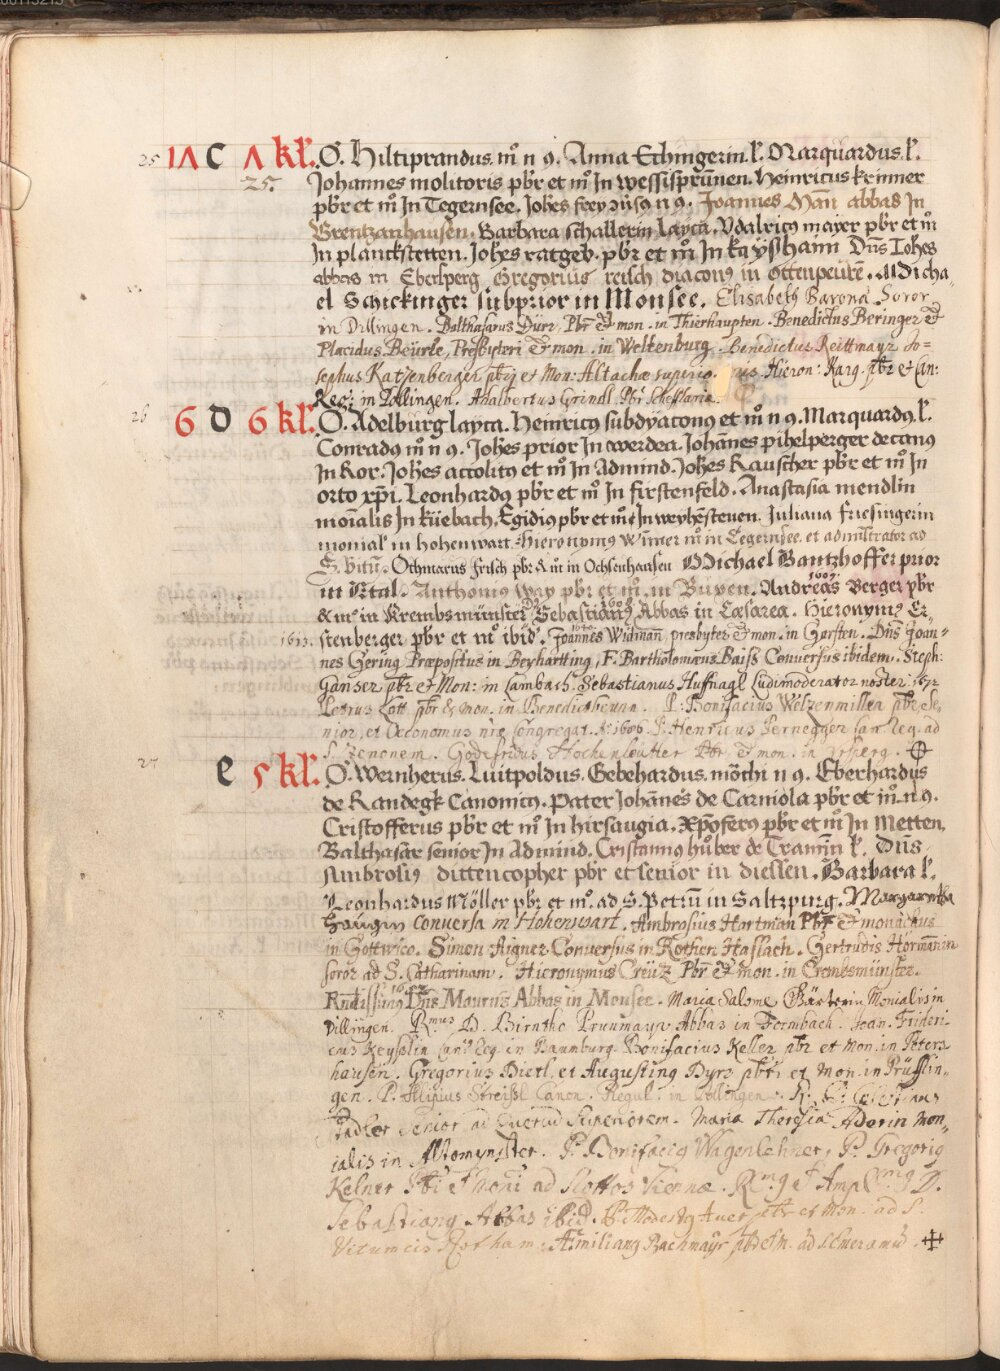 25 IΛ C Λ kl̃. O. Hiltiprandus. m̊ n 9. Anna Echingerin. l̓. Marquardus. l̓.
25. Johannes molitoris pbr̄ et m̊ In wessisprūnnen. Heinricus kenner
pbr̄ et m̊ In Tegernsee. Joh̄es frey n 9. Joannes Man̄ abbas In
Brentzanhausen. Barbara schallerin Layca. Vdalricus mayer pbr̄ et m̊
In planckstetten. Joh̄es ratgeb. pbr̄ et m̊ In kayshaim Dn̄s Ioh̄es
abbas in Ebersperg Gregorius reisch diacon9 in ottenpeure. Micha-
el Schickinger subprior in Monsee. Elisabeth Barona Soror
in Dillingen. Balthasarus Dürr, Pbr̄ et mon. in Thierhaupten. Benedictus Beringer et
Placidus Beürle, Presbyteri et mon. in Weltenburg. Benedictus Reittmayr Jo=
sephus Katzenberger pb̄rj et Mon: Altachæ superio Hieron: Karg. pbr̄ et Can:
Reg: in Pollingen. Adalbertus Grindl Pbr̄ Scheftlariæ.
26 6 D 6 kl̃. O. Adelburg layca. Heinric9 subdyacon9 et m̊ n 9. Marquard9. l̓.
Conrad9 m̊ n 9. Joh̄es prior In werdea. Johān̄es pihelperger decan9
In Ror. Joh̄es accolit9 et m̊ In Admnd. Joh̄es Rauscher pbr̄ et m̊ In
orto xp̄i. Leonhard9 pbr̄ et m̊ In firstenfeld. Anastasia mendlin
moīalis In küebach. Egidi9 pbr̄ et m̊ In weyhēsteuen. Juliana friesingerin
monial̓ in hohenwart. Hieronym9 Wimer m̊ in Tegernsee. et admīstrator ad
S. Vitū. Othmarus frisch pbr̄ & m̊ in Ochsenhausen Michael Bantzhoffer prior
in Etal. Anthoni9 way pbr̄ et m̊. in Biren. Andreas 1607 Berger pbr̄
& m̊ in Krembsmünster Sebastian9 Abbas in Cæsarea. Hieronym9 Er-
1633. stenberger pbr̄ et m̊ ibid̄. Joannes Widman̄ presbyter et mon. in Garsten. Dn̄s Joan-
nes Gering Præpositus in Beyhartting, F. Bartholomæus Baiss Conversus ibidem. Steph:
Ganser pbr̄ et Mon: in Lambach. Sebastianus Huffnagl Ludimoderator noster.
Petrus Lott pbr̄ & mon. in Benedictbeurn. P: Bonifacius Welzenmiller pbr̄, Se-
nior, et Oeconomus nr̄æ Congregat. P. Henricus Pernegger Can. Reg. ad
S. Zenonem. Godefridus Hochenleutter Pbr̄ et mon. in
27 e 5 kl̃. O. Wernherus. Luitpoldus. Gebehardus. mōchi n 9. Eberhardus
de Randegk Canonic9. Pater Johānes de Carniola pbr̄ et m̊. n 9.
Cristofferus pbr̄ et m̊ In hirsaugia. Xp̄ofer9 pbr̄ et m̊ In Metten.
Balthasar senior In Admnd. Cristann9 hůber de Tramin̄ l̓. Dn̄s
Ambrosi9 dittencopher pbr̄ et senior in diessen. Barbara l̓.
Leonhardus Möller pbr̄ et m̊. ad S. Petrū in Saltzpurg. Margaretha
haugin conversa in Hohenwart. Ambrosius Hartman Pbr̄ et monachus
in Gottwico. Simon Aigner Conversus in Rotten Haslach. Gertrudis Hörmanin
soror ad S. Catharinam. Hieronymus Creüz Pbr̄ et mon. in Crembsmünster.
Rn̄dissim9 Dn̄s Maurus Abbas in Monsee. Maria Salome Gärterin Monialis in
Dillingen. R.mus D. Abbas in Formbach. Joan. Frideri-
cus Keysslin Can: Reg. in Baumburg. Bonifacius Keller pbr̄ et mon. in Peters
hausen. Gregorius Dietl, et Augustin9 Dyrr pbr̄i et Mon. in Prüflin-
gen. P. Alipius Streissl Canon. Regul. in Pollingen.
Stadler Senior ad Maria Theresia Adorin Mon-
ialis in Altomynster. P. Bonifaci9 Wagenlehner, P. Gregori9
Kelner Pb̄ri et Moni ad Scottos Viennæ. R.m9 et Ampl.m9 D.
Sebastian9 Abbas ibid. P. Modest9 Auer pbr̄ et Mon. ad S.
Vitum cis Rotham. Æmilian9 Bachmayr pbr̄ et M. ad S. Emeramū.